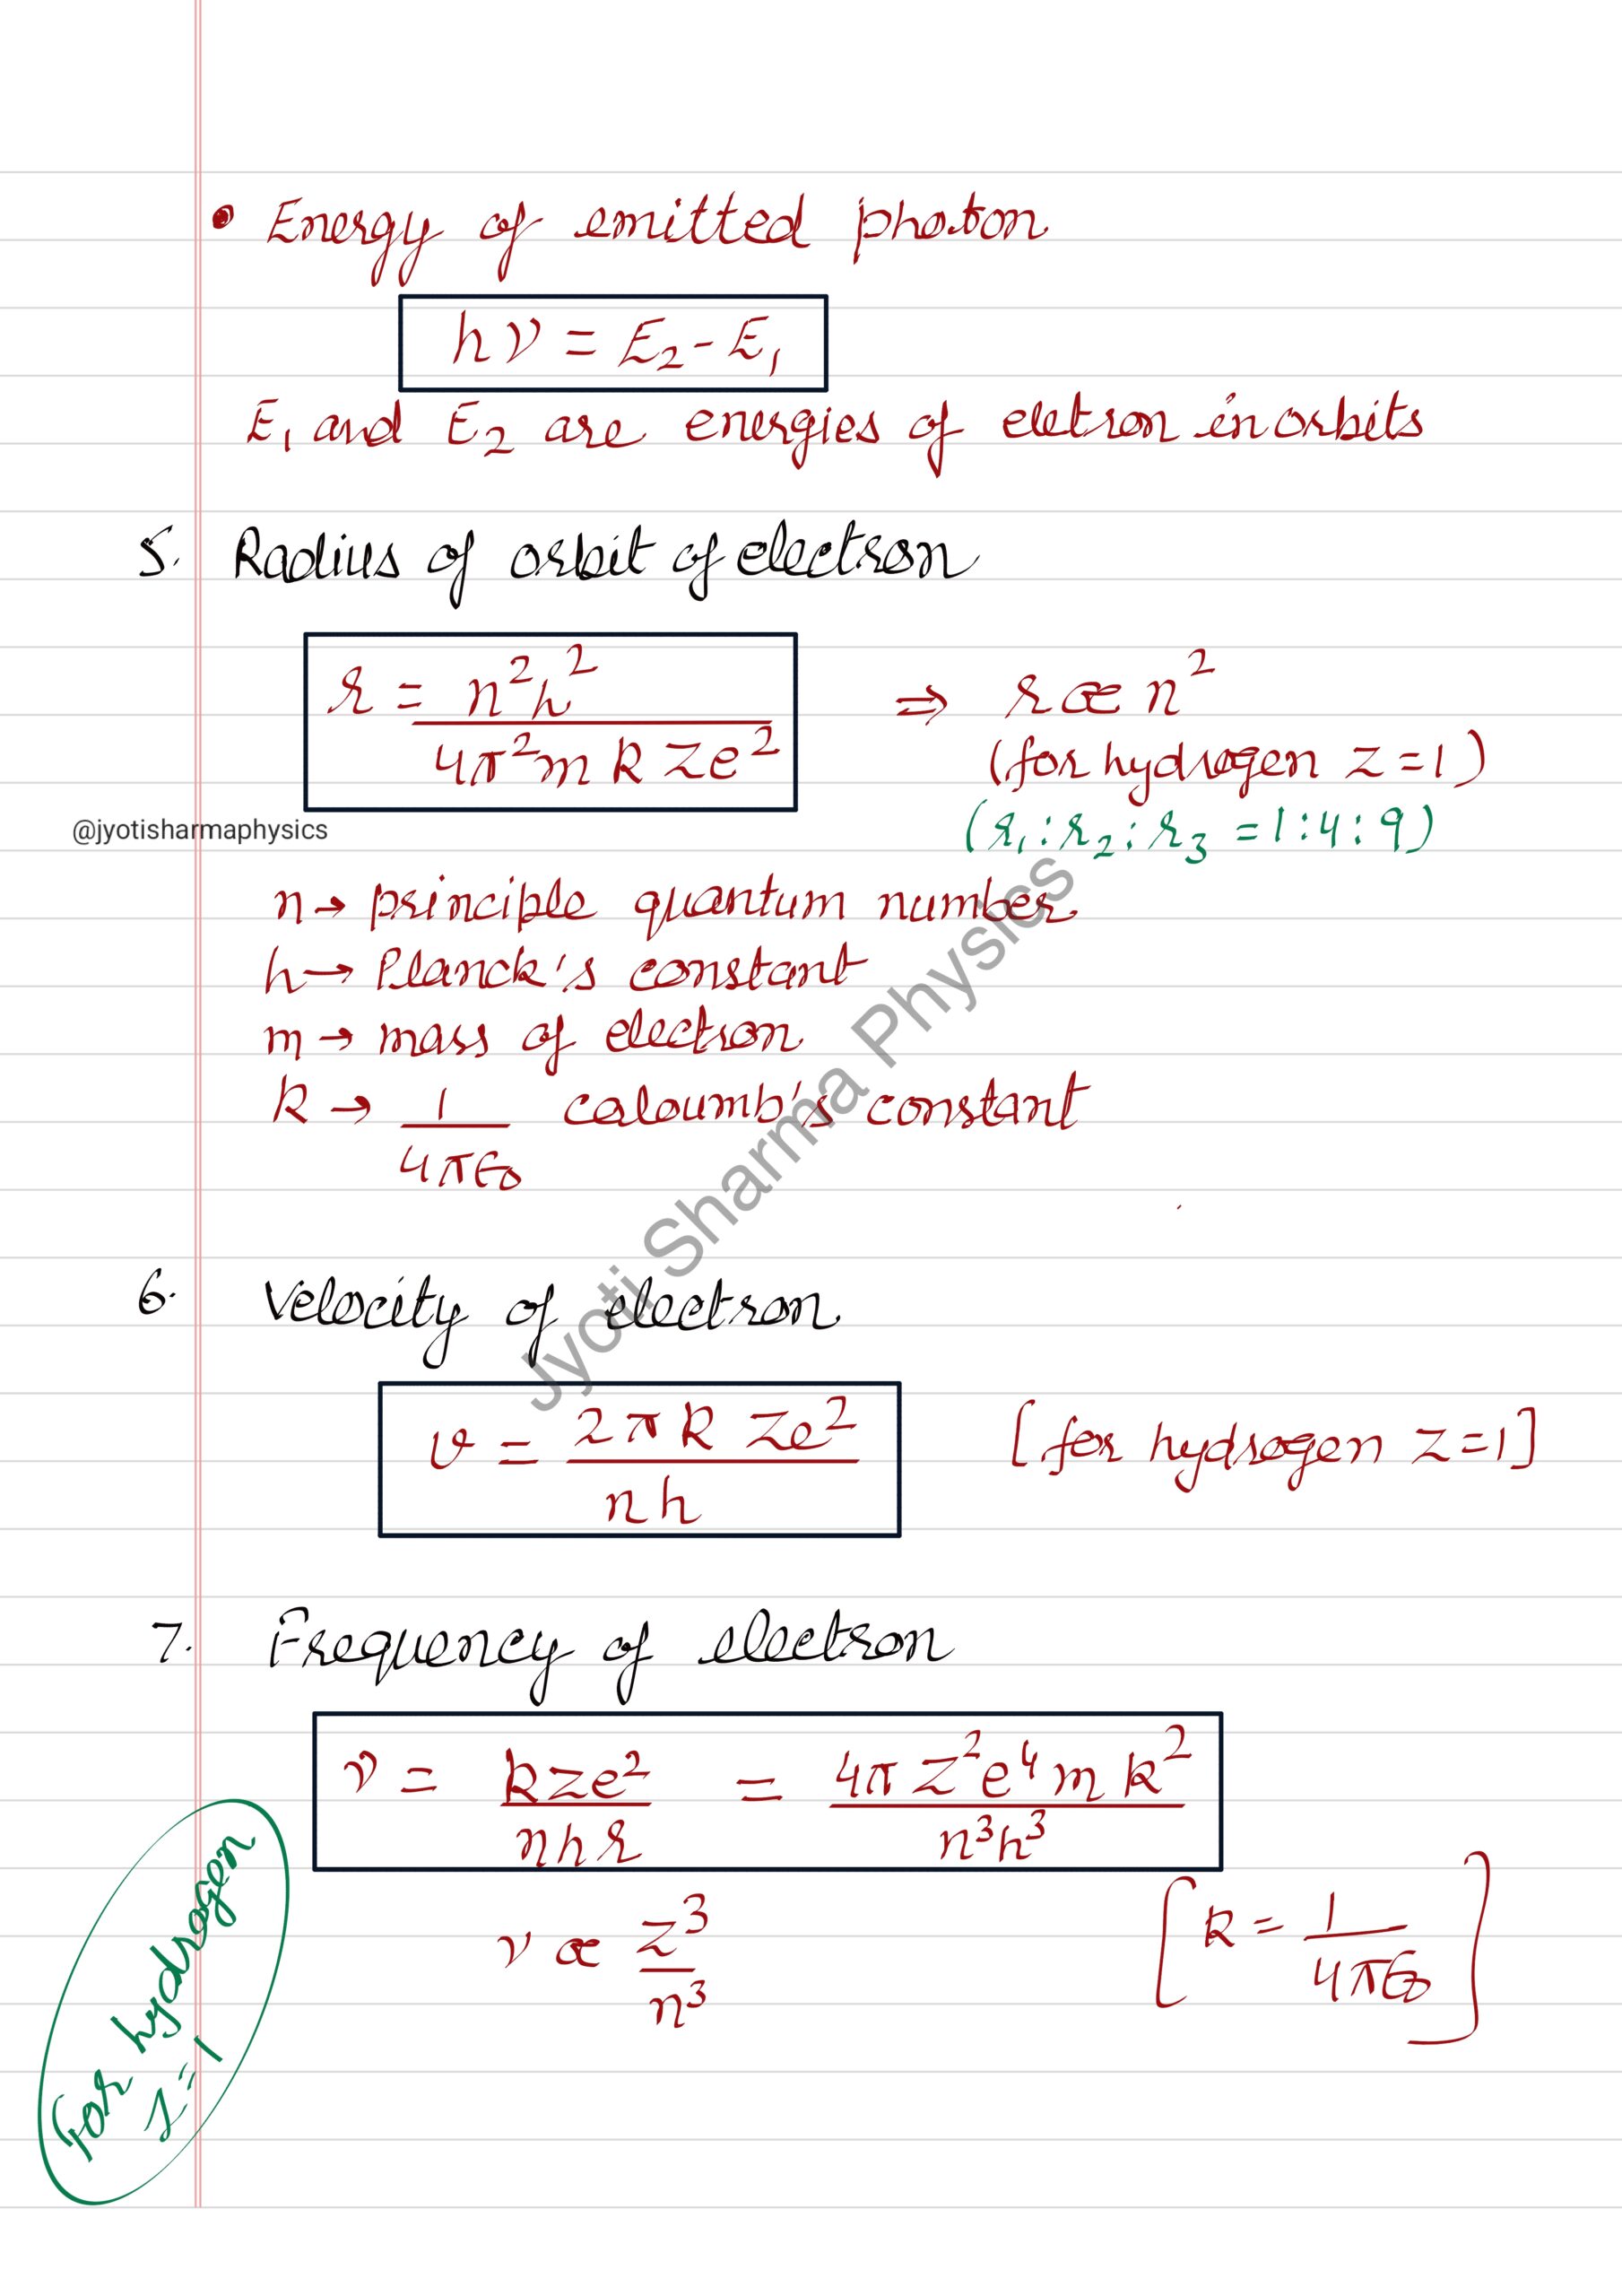 • Energy of emitted photon
hν = E₂ - E₁
E₁ and E₂ are energies of eletron in orbits
5. Radius of orbit of electron
r = n²h² / 4π²m k ze² ⇒ r ∝ n²
(for hydrogen z = 1)
(r₁ : r₂ : r₃ = 1 : 4 : 9)
@jyotisharmaphysics
n → principle quantum number
h → Planck's constant
m → mass of electron
k → 1 / 4πϵ₀ caloumb's constant
Jyoti Sharma Physics
6. Velocity of electron
v = 2πk ze² / nh [for hydrogen z = 1]
7. Frequency of electron
ν = kze² / nhr = 4π z²e⁴mk² / n³h³
ν ∝ z³ / n³
[k = 1 / 4πϵ₀]
For hydrogen
z = 1